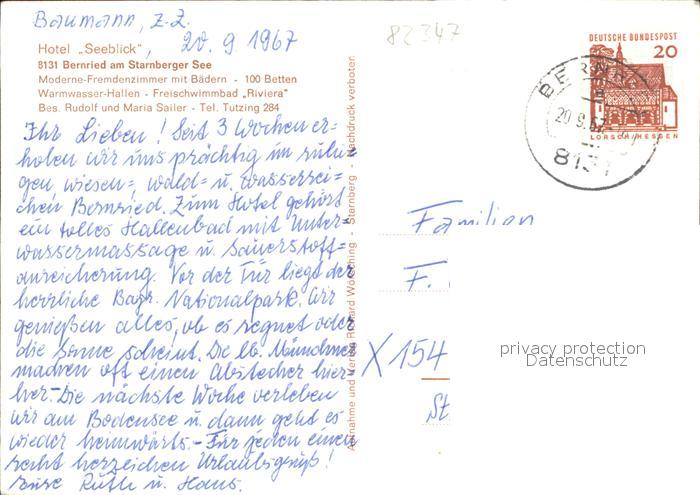 Baumann, z.Z.
Hotel „Seeblick", 20.9 1967
8131 Bernried am Starnberger See
Moderne-Fremdenzimmer mit Bädern - 100 Betten
Warmwasser-Hallen - Freischwimmbad „Riviera"
Bes. Rudolf und Maria Sailer - Tel. Tutzing 284
Ihr Lieben! Seit 3 Wochen er=
holen wir uns prächtig im ruhi=
gen, wiesen=, wald= u. wasserrei=
chen Bernried. Zum Hotel gehört
ein tolles Hallenbad mit Unter=
wassermassage u. Sauerstoff=
anreicherung. Vor der Tür liegt der
herrliche Bayr. Nationalpark. Wir
genießen alles, ob es regnet oder
die Sonne scheint. Die lb. Münchner
machen oft einen Abstecher hier=
her. Die nächste Woche verleben
wir am Bodensee u. dann geht es
wieder heimwärts.- Für jeden einen
recht herzlichen Urlaubsgruß!
Eure Ruth u. Hans.
Aufnahme und Verlag Richard Wörsching - Starnberg - Nachdruck verboten
82347
DEUTSCHE BUNDESPOST
20
LORSCH/HESSEN
BERNRIED
20.9.67
8131
Familien
F.
X 154
St
privacy protection
Datenschutz